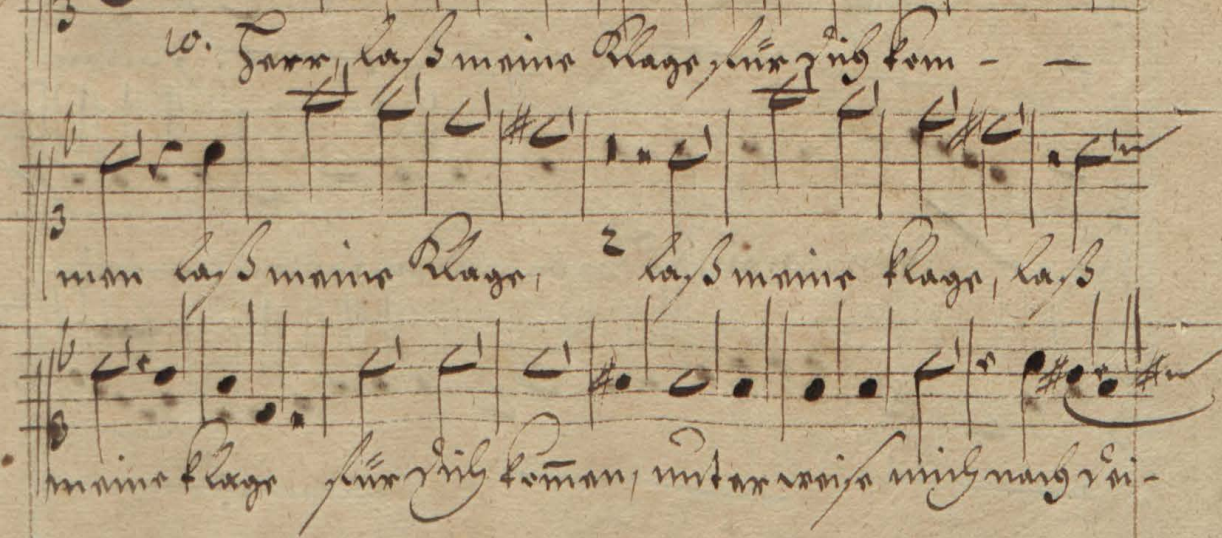 10. Herr, laß meine Klage für dich kom- -
3
men laß meine Klage, 2 laß meine klage, laß
3
meine klage für dich kom̄en, unterweise mich nach dei-